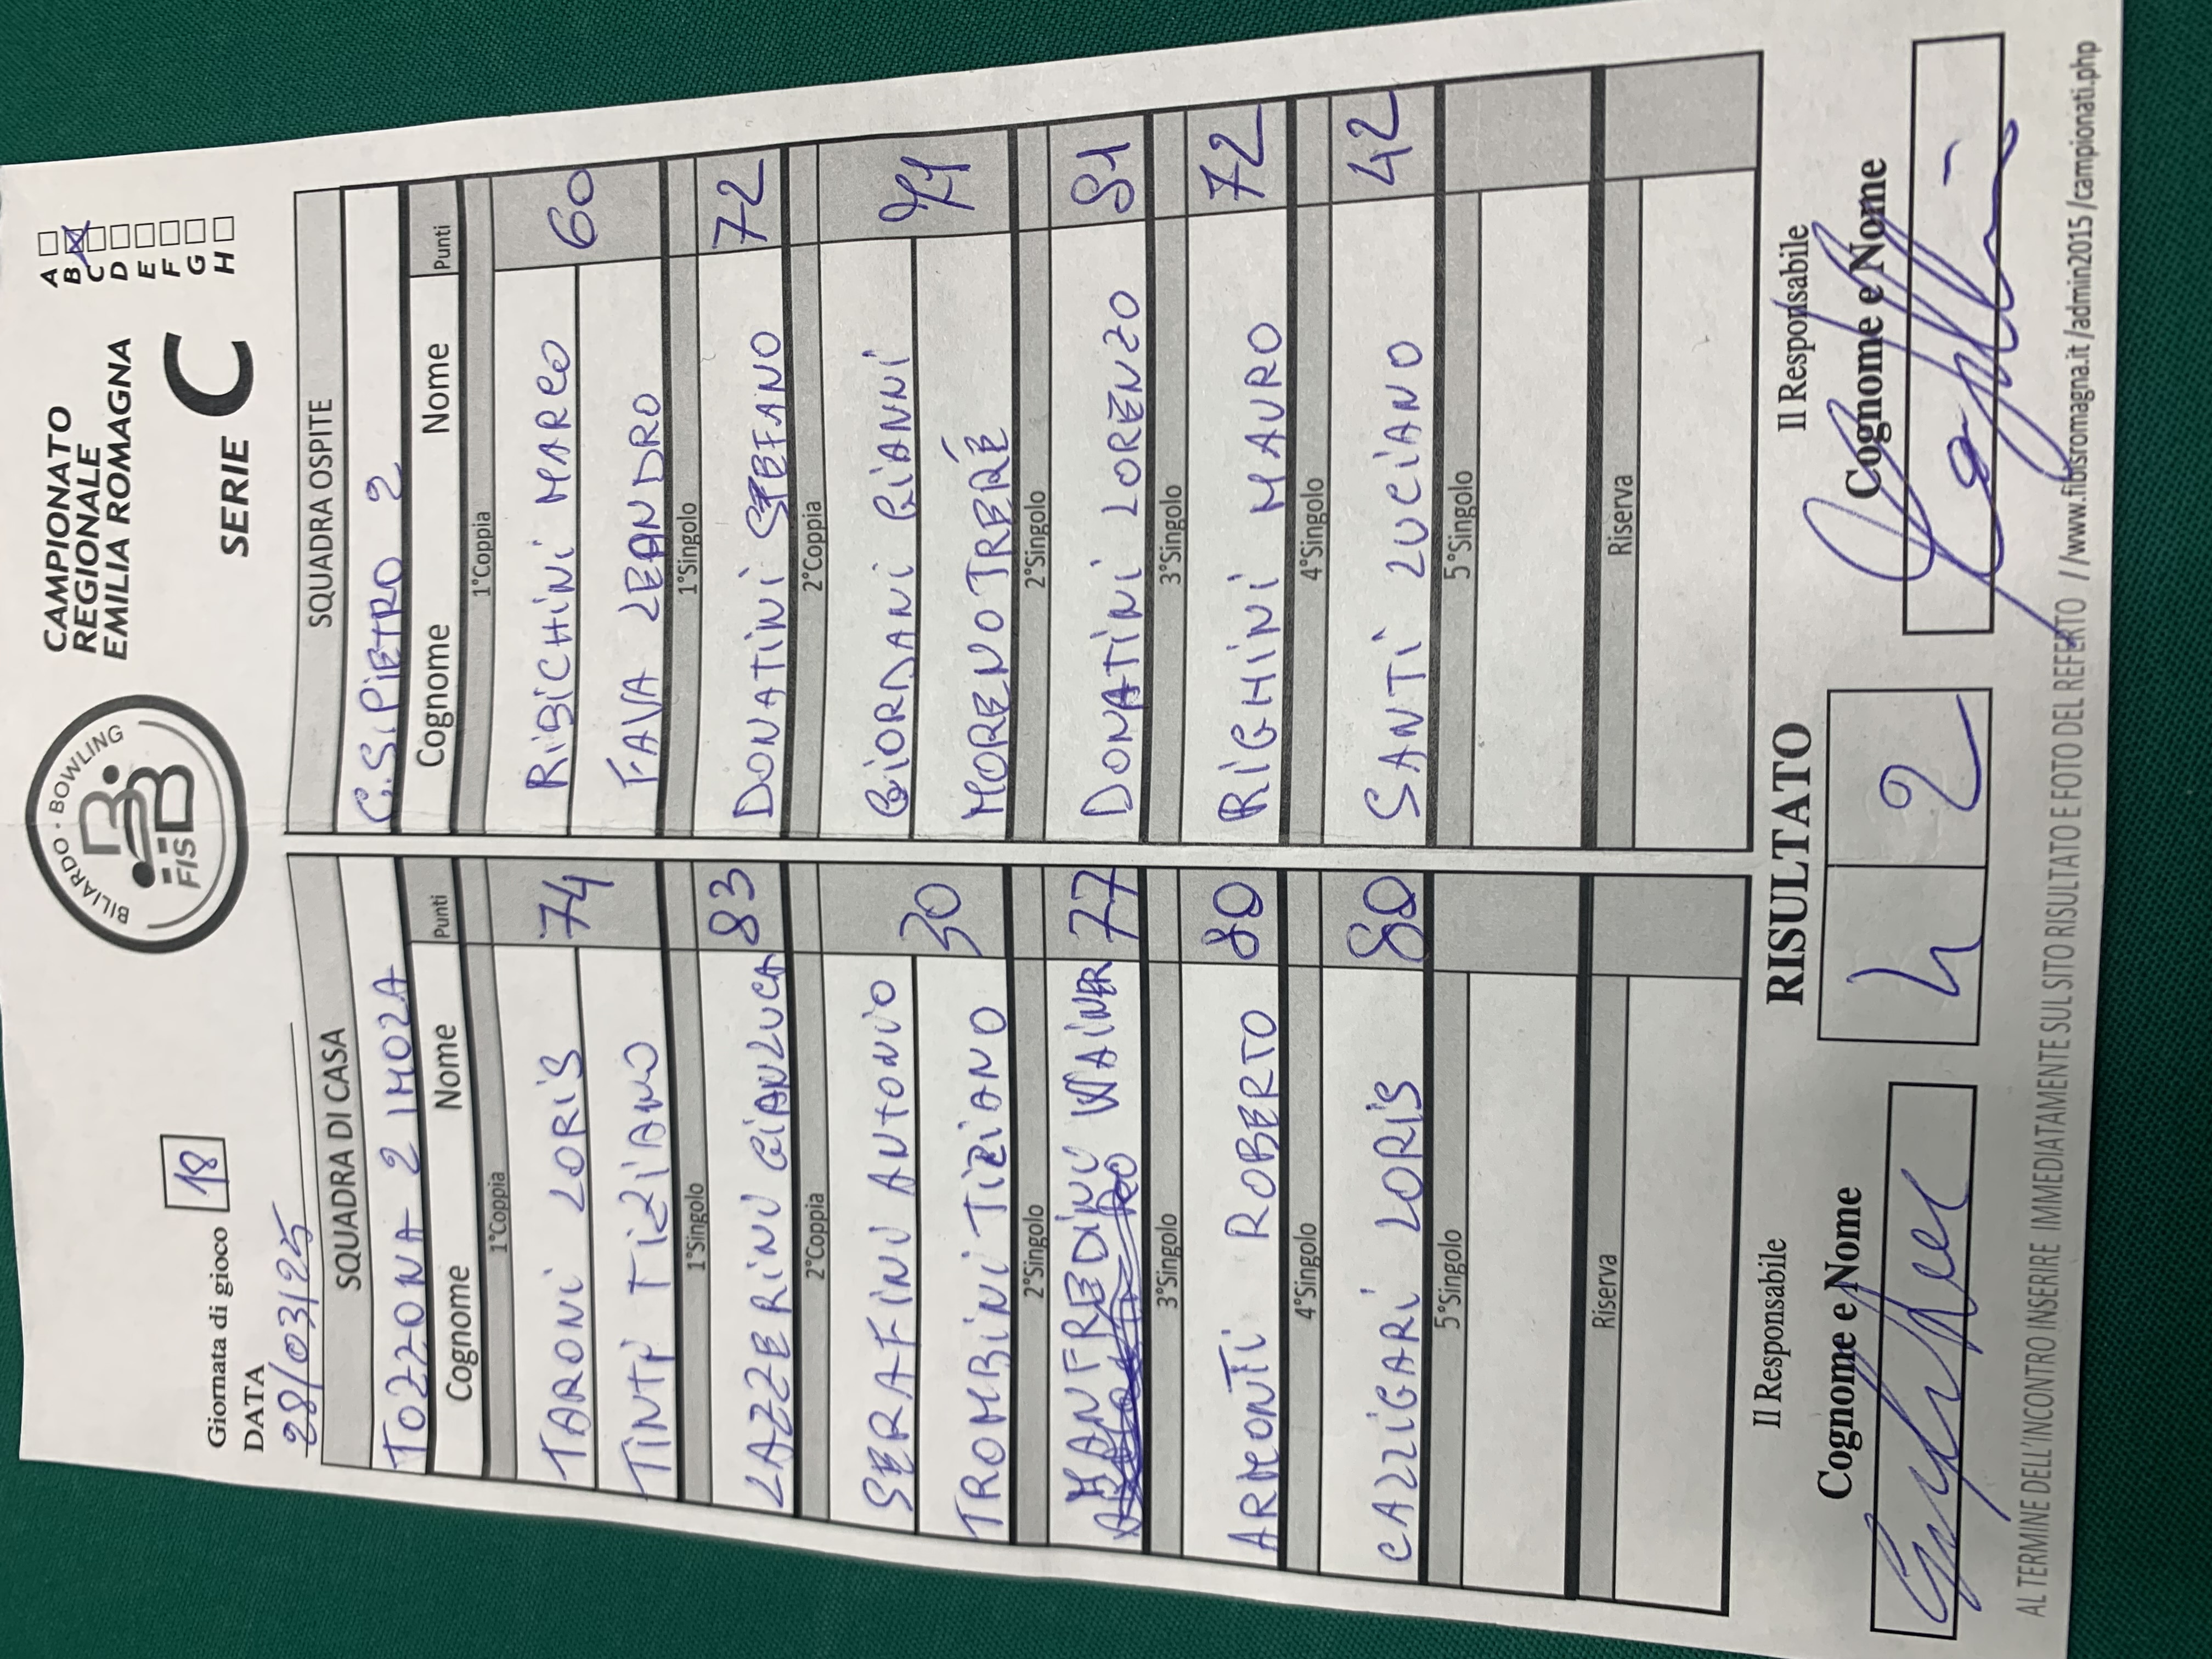 BILIARDO · BOWLING
FISBB
CAMPIONATO
REGIONALE
EMILIA ROMAGNA
SERIE C
A
B
C
D
E
F
G
H
Giornata di gioco 18
DATA
28/03/25
SQUADRA DI CASA
TOZZONA 2 IMOLA
Cognome Nome Punti
1°Coppia
TARONI LORIS 74
TINTI TIZIANO
1°Singolo
LAZZERINI GIANLUCA 83
2°Coppia
SERAFINI ANTONIO 30
TROMBINI TIZIANO
2°Singolo
MANFREDINI WAINER 77
3°Singolo
ARMONTI ROBERTO 80
4°Singolo
CALZIGARI LORIS 80
5°Singolo
Riserva
SQUADRA OSPITE
C.S.PIETRO 2
Cognome Nome Punti
1°Coppia
RIBICHINI MARCO 60
FAVA LEANDRO
1°Singolo
DONATINI STEFANO 72
2°Coppia
GIORDANI GIANNI
MORENO TRERÉ
2°Singolo
DONATINI LORENZO 81
3°Singolo
RIGHINI MAURO 72
4°Singolo
SANTI LUCIANO 42
5°Singolo
Riserva
Il Responsabile
Cognome e Nome
RISULTATO
4 2
Il Responsabile
Cognome e Nome
AL TERMINE DELL'INCONTRO INSERIRE IMMEDIATAMENTE SUL SITO RISULTATO E FOTO DEL REFERTO //www.fibisromagna.it/admin2015/campionati.php